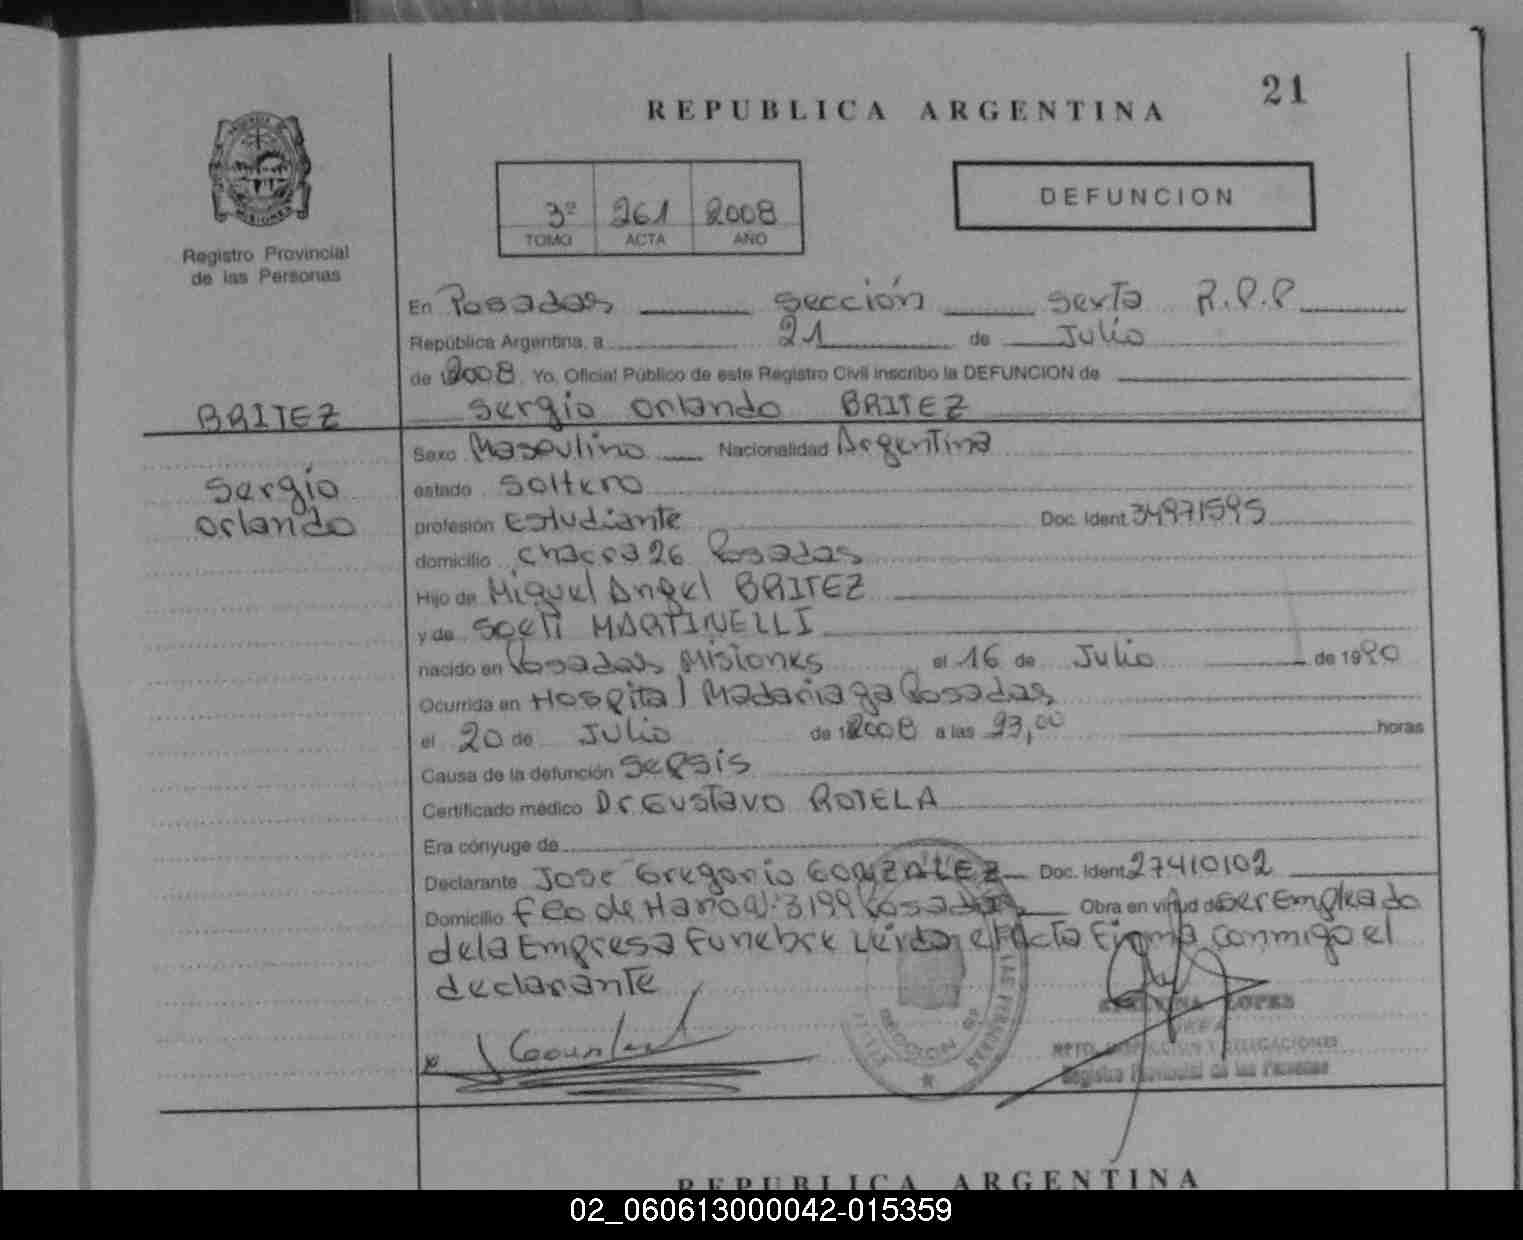 21
REPUBLICA ARGENTINA
DEFUNCION
3º 261 2008
TOMO ACTA AÑO
Registro Provincial
de las Personas
En Posadas sección sexta R.P.P
República Argentina, a 21 de Julio
de 12008. Yo, Oficial Público de este Registro Civil inscribo la DEFUNCION de
BRITEZ Sergio Orlando BRITEZ
Sexo Masculino Nacionalidad Argentina
Sergio estado Soltero
Orlando profesión Estudiante Doc. Ident. 34971595
domicilio chacra 26 Posadas
Hijo de Miguel Angel BRITEZ
y de MARTINELLI
nacido en Posadas Misiones el 16 de Julio de 1990
Ocurrida en Hospital Madariaga Posadas
el 20 de Julio de 12008 a las 23,00 horas
Causa de la defunción Sepsis
Certificado médico Dr Gustavo ROTELA
Era cónyuge de
Declarante Jose Gregorio GONZALEZ Doc. Ident. 27410102
Domicilio Fco de Haro Nº 3199 Posadas Obra en virtud de ser Empleado
de la Empresa Funebre Leida el Acta Firma conmigo el
declarante
LOPES
DPTO. INSPECCION Y DELEGACIONES
Registro Provincial de las Personas
REPUBLICA ARGENTINA
02_060613000042-015359